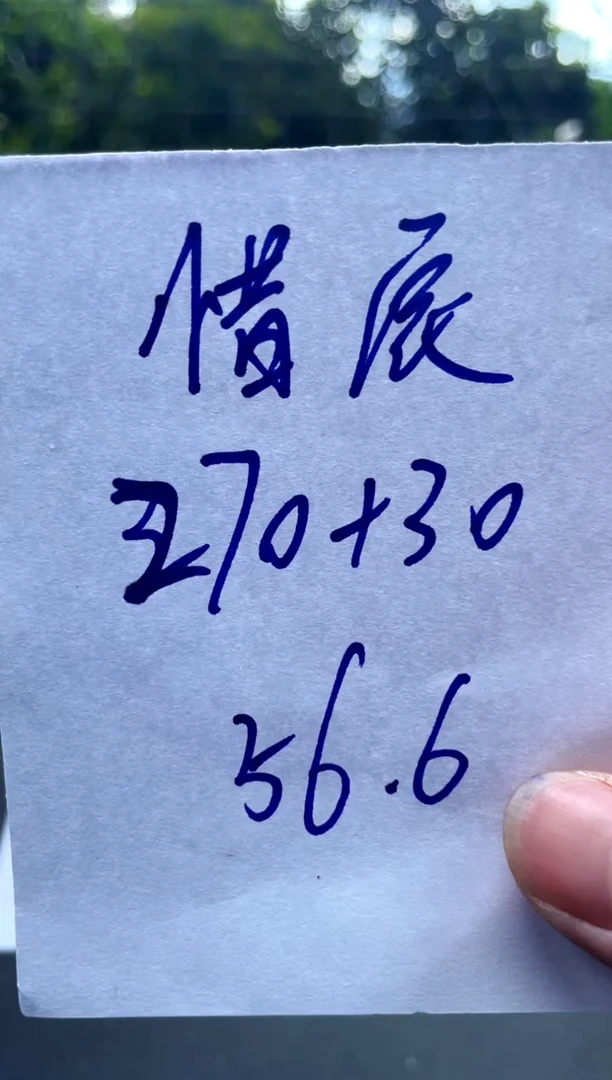 惜辰
270+30
56.6